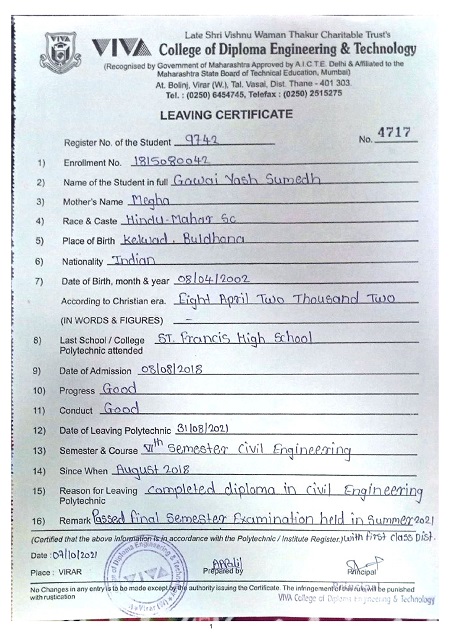 Late Shri Vishnu Waman Thakur Charitable Trust's
VIVA College of Diploma Engineering & Technology
(Recognised by Government of Maharashtra Approved by A.I.C.T.E. Delhi & Affiliated to the
Maharashtra State Board of Technical Education, Mumbai)
At. Bolinj, Virar (W.), Tal. Vasai, Dist. Thane - 401 303.
Tel. : (0250) 6454745, Telefax : (0250) 2515275
LEAVING CERTIFICATE
Register No. of the Student 9742 No. 4717
1) Enrollment No. 1815080042
2) Name of the Student in full Gawai Yash Sumedh
3) Mother's Name Megha
4) Race & Caste Hindu-Mahar SC
5) Place of Birth Kelwad. Buldhana
6) Nationality Indian
7) Date of Birth, month & year 08/04/2002
According to Christian era. Eight April Two Thousand Two
(IN WORDS & FIGURES) –
8) Last School / College ST. Francis High School
Polytechnic attended
9) Date of Admission 08/08/2018
10) Progress Good
11) Conduct Good
12) Date of Leaving Polytechnic 31/08/2021
13) Semester & Course VIth Semester Civil Engineering
14) Since When August 2018
15) Reason for Leaving Completed diploma in Civil Engineering
Polytechnic
16) Remark Passed Final Semester Examination held in Summer 2021
(Certified that the above information is in accordance with the Polytechnic / Institute Register.) with First class Dist.
Date : 07/10/2021
Place : VIRAR Prepared by Principal
No Changes in any entry is to be made except by the authority issuing the Certificate. The infringement of this rule will be punished
with rustication
Principal
VIVA College of Diploma Engineering & Technology
1